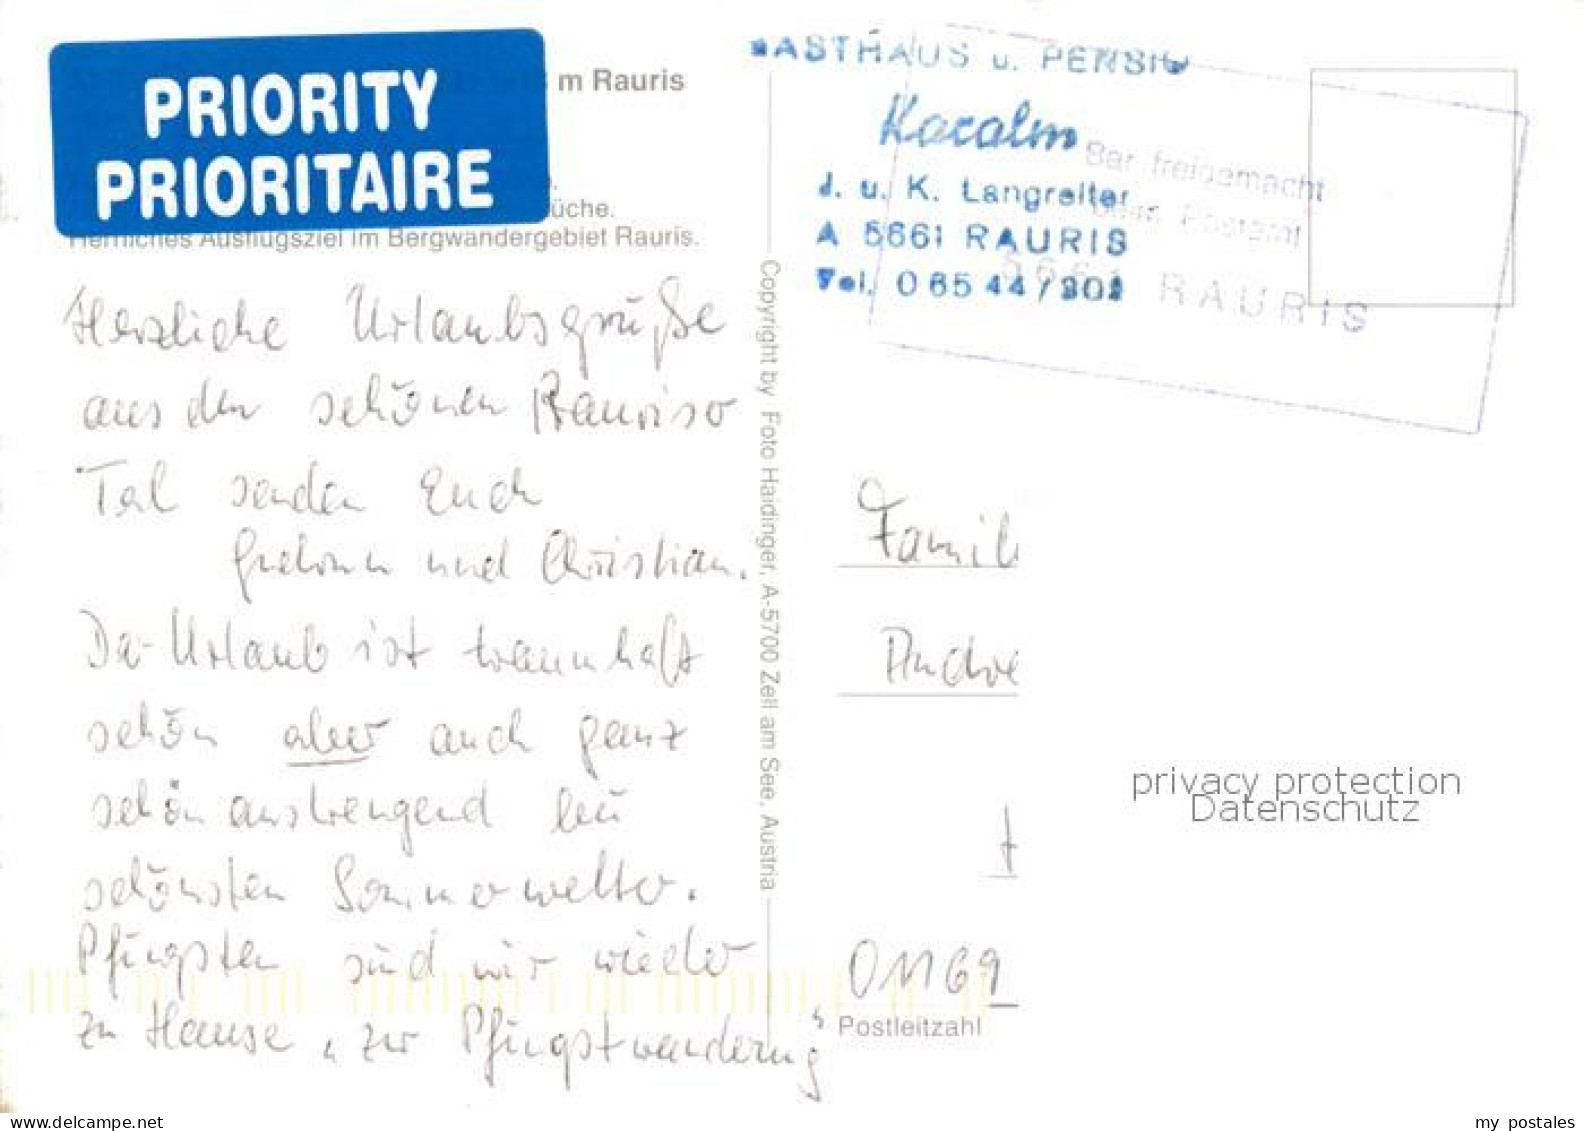 PRIORITY
PRIORITAIRE
m Rauris
üche.
Herrliches Ausflugsziel im Bergwandergebiet Rauris.
Herzliche Urlaubsgrüße
aus dem schönen Rauriser
Tal senden Euch
und Christian.
Der Urlaub ist traumhaft
schön aber auch ganz
schön anstrengend bei
schönsten Sommerwetter.
Pfingsten sind wir wieder
zu Hause „zur Pfingstwanderung“
Copyright by Foto Haidinger, A-5700 Zell am See, Austria
ASTHAUS u. PENSIO
Kocalm
J. u. K. Langreiter
A 5661 RAURIS
Tel. 0 65 44 /
Bar freigemacht
beim Postamt
5661 RAURIS
Famili
Andre
01169
Postleitzahl
privacy protection
Datenschutz
www.delcampe.net
my_postales